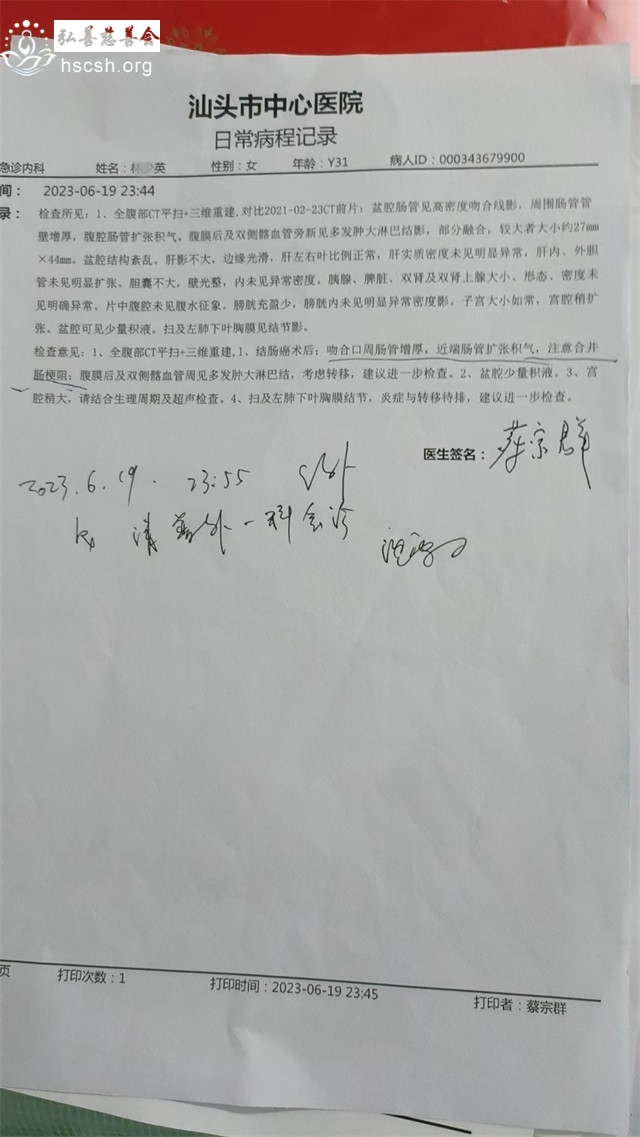 弘善慈善会
hscsh.org
汕头市中心医院
日常病程记录
急诊内科 姓名：林 英 性别：女 年龄：Y31 病人ID：000343679900
间： 2023-06-19 23:44
录： 检查所见：1、全腹部CT平扫+三维重建,对比2021-02-23CT前片：盆腔肠管见高密度吻合线影，周围肠管管
壁增厚，腹腔肠管扩张积气。腹膜后及双侧髂血管旁新见多发肿大淋巴结影，部分融合，较大者大小约27mm
×44mm。盆腔结构紊乱。肝影不大，边缘光滑，肝左右叶比例正常，肝实质密度未见明显异常，肝内、外胆
管未见明显扩张。胆囊不大，壁光整，内未见异常密度。胰腺、脾脏，双肾及双肾上腺大小、形态、密度未
见明确异常。片中腹腔未见腹水征象。膀胱充盈少，膀胱内未见明显异常密度影。子宫大小如常，宫腔稍扩
张。盆腔可见少量积液。扫及左肺下叶胸膜见结节影。
检查意见：1、全腹部CT平扫+三维重建,1、结肠癌术后：吻合口周肠管增厚，近端肠管扩张积气，注意合并
肠梗阻；腹膜后及双侧髂血管周见多发肿大淋巴结，考虑转移，建议进一步检查。2、盆腔少量积液。3、宫
腔稍大，请结合生理周期及超声检查。4、扫及左肺下叶胸膜结节，炎症与转移待排，建议进一步检查。
医生签名：蔡宗群
2023.6.19. 23:55
请 外一科会诊
页 打印次数：1 打印时间：2023-06-19 23:45 打印者：蔡宗群